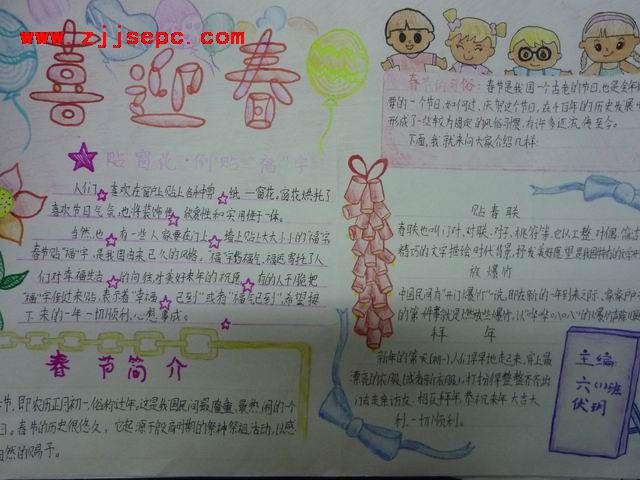 www.zjjsepc.com
喜迎春
贴窗花·倒贴"福"字
人们 喜欢在窗户上贴上各种剪 纸—窗花。窗花烘托了
喜庆节日气氛,也将装饰性 欣赏性和实用性于一体。
当然,也 有一些人家要在门上 墙上贴上大大小小的"福"字
春节贴"福"字,是我国由来已久的风俗。"福"字指福气,福运,寄托了人
们对幸福生活 的向往,对美好未来的祝愿 有的人干脆把
"福"字倒过来贴,表示着"幸福 已到"或者"福气已到",希望接
下来的一年一切顺利,心想事成。
春节简介
节,即农历正月初一,俗称过年。这是我国民间最隆重、最热闹的一个
日。春节的历史很悠久,它起源于殷商时期的祭神祭祖活动,以感
自然的赐予。
春节的习俗:春节是我国一个古老的节日,也是全年
要的一个节日,如何过,庆贺这个节日,在千百年的历史发展
形成了一些较为固定的风俗习惯,有许多还流传至今。
下面,我就来向大家介绍几样:
贴春联
春联也叫门对、对联、对子、桃符等,它以工整、对偶、简洁
精巧的文字描绘时代背景,抒发美好愿望,是我国特有的文学
放爆竹
中国民间有"开门爆竹"一说,即在新的一年到来之际,家家户户
的第一件事就是燃放爆竹,以
拜年
新年的第一天(初一),人们早早地走起来,穿上最
漂亮的衣服(或者新衣服),打扮得整整齐齐,出
门去走亲访友,相互拜年,恭祝来年大吉大
利,一切顺利。
主编:
六(1)班
伏玥